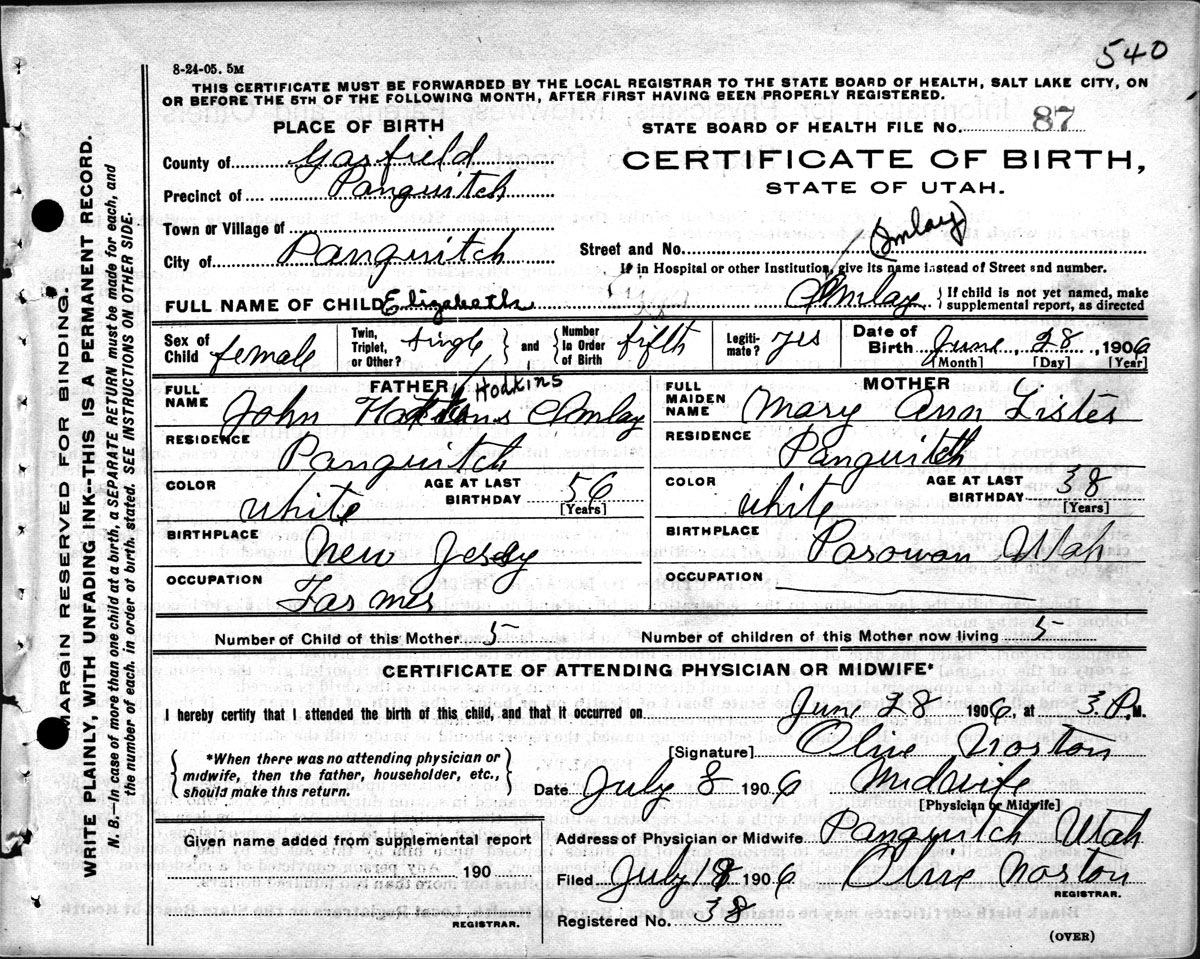 540
8-24-05. 5M
THIS CERTIFICATE MUST BE FORWARDED BY THE LOCAL REGISTRAR TO THE STATE BOARD OF HEALTH, SALT LAKE CITY, ON
OR BEFORE THE 5TH OF THE FOLLOWING MONTH, AFTER FIRST HAVING BEEN PROPERLY REGISTERED.
PLACE OF BIRTH
STATE BOARD OF HEALTH FILE No. 87
County of Garfield
CERTIFICATE OF BIRTH,
Precinct of Panguitch
STATE OF UTAH.
Town or Village of
(Imlay)
City of Panguitch
Street and No.
If in Hospital or other Institution, give its name instead of Street and number.
FULL NAME OF CHILD Elizabeth Imlay } If child is not yet named, make supplemental report, as directed
Sex of Child female Twin, Triplet, or Other? single } and { Number in Order of Birth fifth Legitimate? yes Date of Birth June, 28, 1906
[Month] [Day] [Year]
FATHER Hodkins
MOTHER
FULL NAME John Imlay
FULL MAIDEN NAME Mary Ann Lister
RESIDENCE Panguitch
RESIDENCE Panguitch
COLOR white AGE AT LAST BIRTHDAY 56 [Years]
COLOR white AGE AT LAST BIRTHDAY 38 [Years]
BIRTHPLACE New Jersey
BIRTHPLACE Parowan Utah
OCCUPATION Farmer
OCCUPATION
Number of Child of this Mother 5
Number of children of this Mother now living 5
CERTIFICATE OF ATTENDING PHYSICIAN OR MIDWIFE*
I hereby certify that I attended the birth of this child, and that it occurred on June 28 1906, at 3 P. M.
{ *When there was no attending physician or midwife, then the father, householder, etc., should make this return. }
[Signature] Olive Norton
Date July 8 1906 Midwife
[Physician or Midwife]
Given name added from supplemental report
190
REGISTRAR.
Address of Physician or Midwife Panguitch Utah
Filed July 18 1906 Olive Norton
REGISTRAR.
Registered No. 38
(OVER)
MARGIN RESERVED FOR BINDING.
WRITE PLAINLY, WITH UNFADING INK--THIS IS A PERMANENT RECORD.
N. B.--In case of more than one child at a birth, a SEPARATE RETURN must be made for each, and
the number of each, in order of birth, stated. SEE INSTRUCTIONS ON OTHER SIDE.